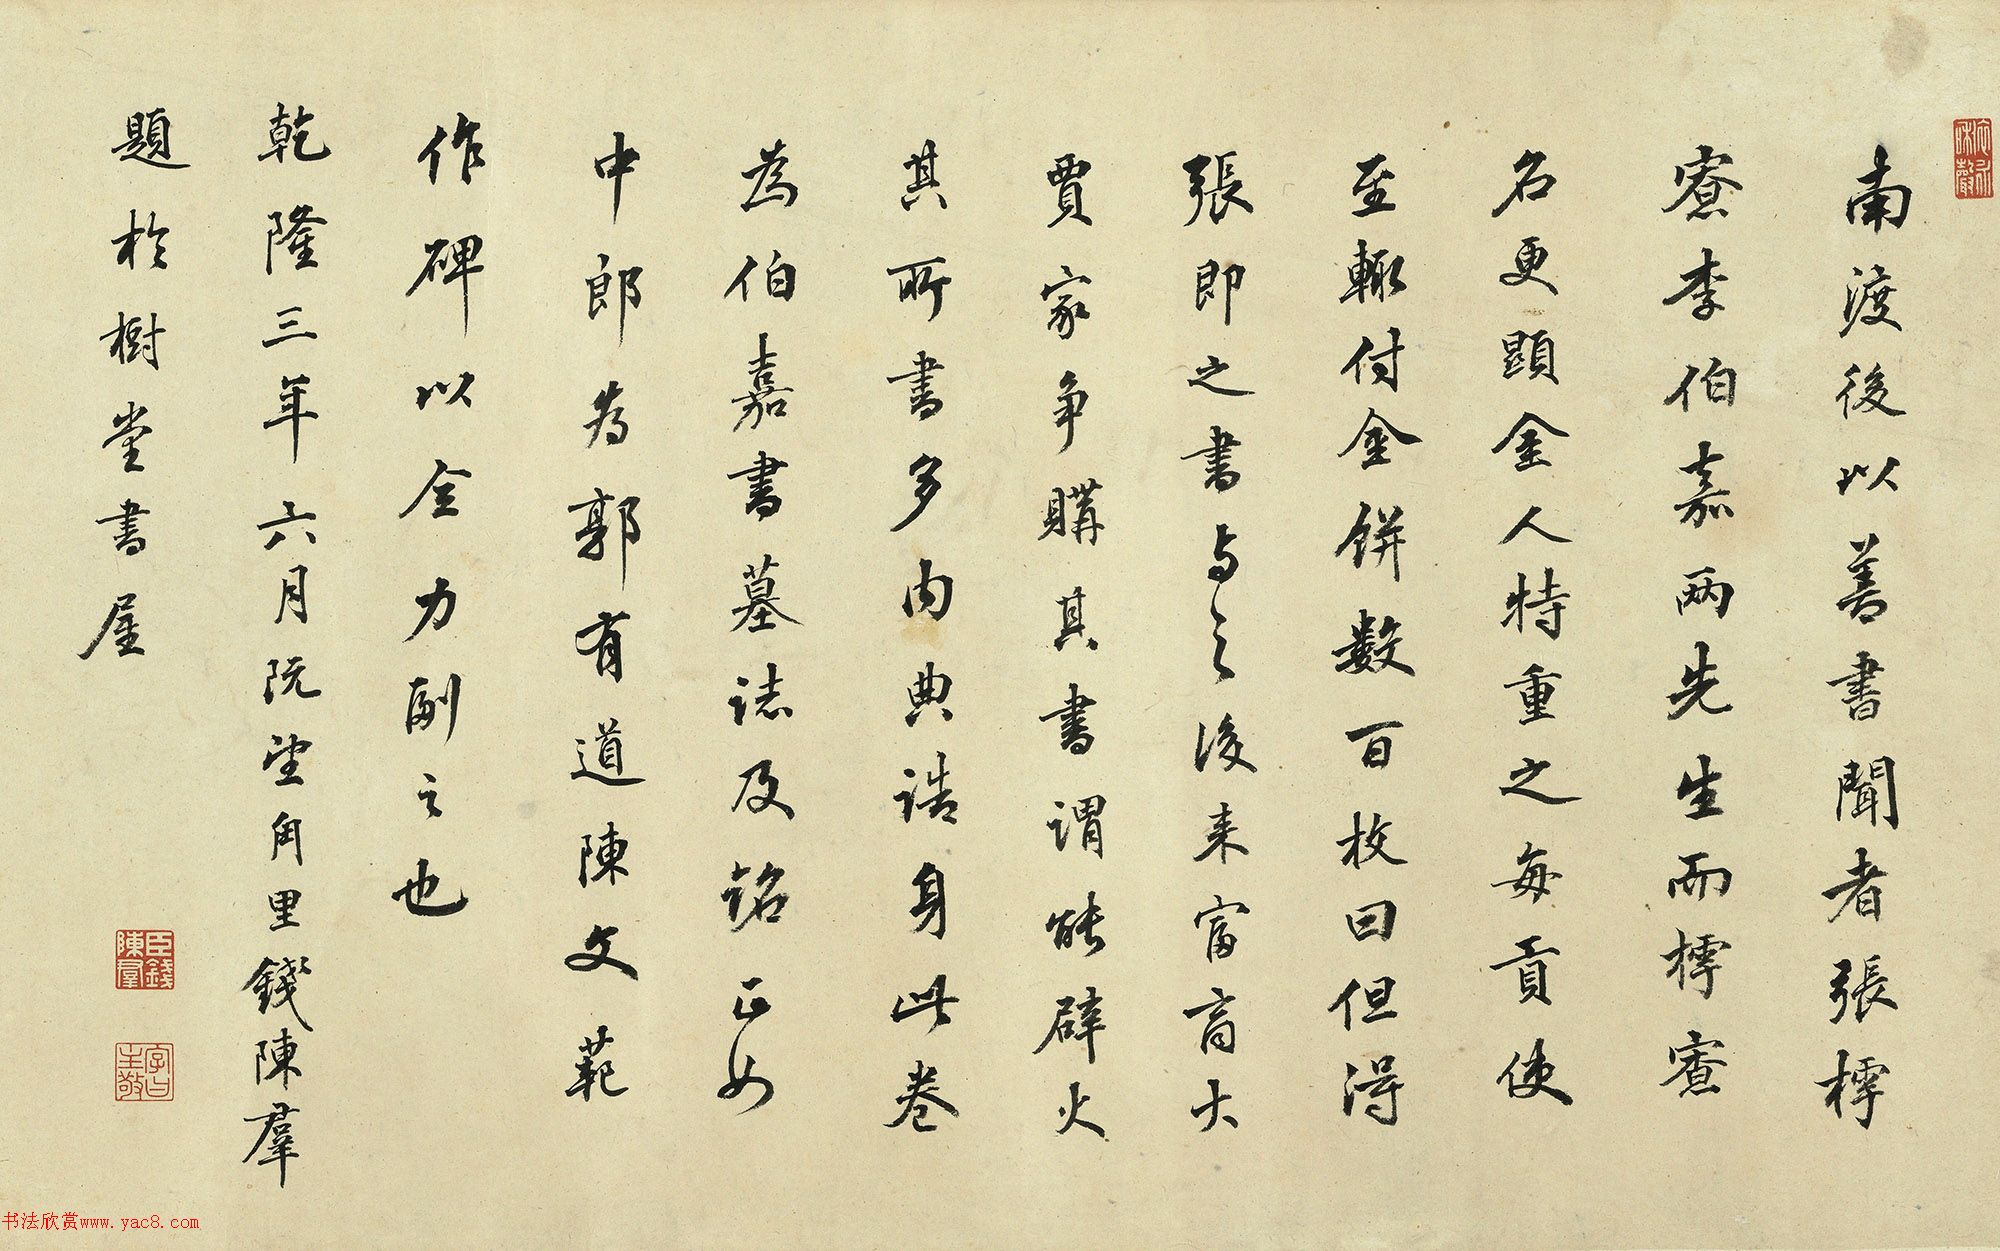 南渡後以善書聞者張樗
寮李伯嘉兩先生而樗寮
名更顯金人特重之每貢使
至輙付金餅數百枚曰但得
張即之書与之後来富商大
賈家争購其書謂能辟火
其所書多内典誥身此卷
為伯嘉書墓誌及銘正如
中郎為郭有道陳文範
作碑以全力副之也
乾隆三年六月既望角里錢陳羣
題於樹堂書屋
臣錢陳羣
字曰主敬
书法欣赏www.yac8.com